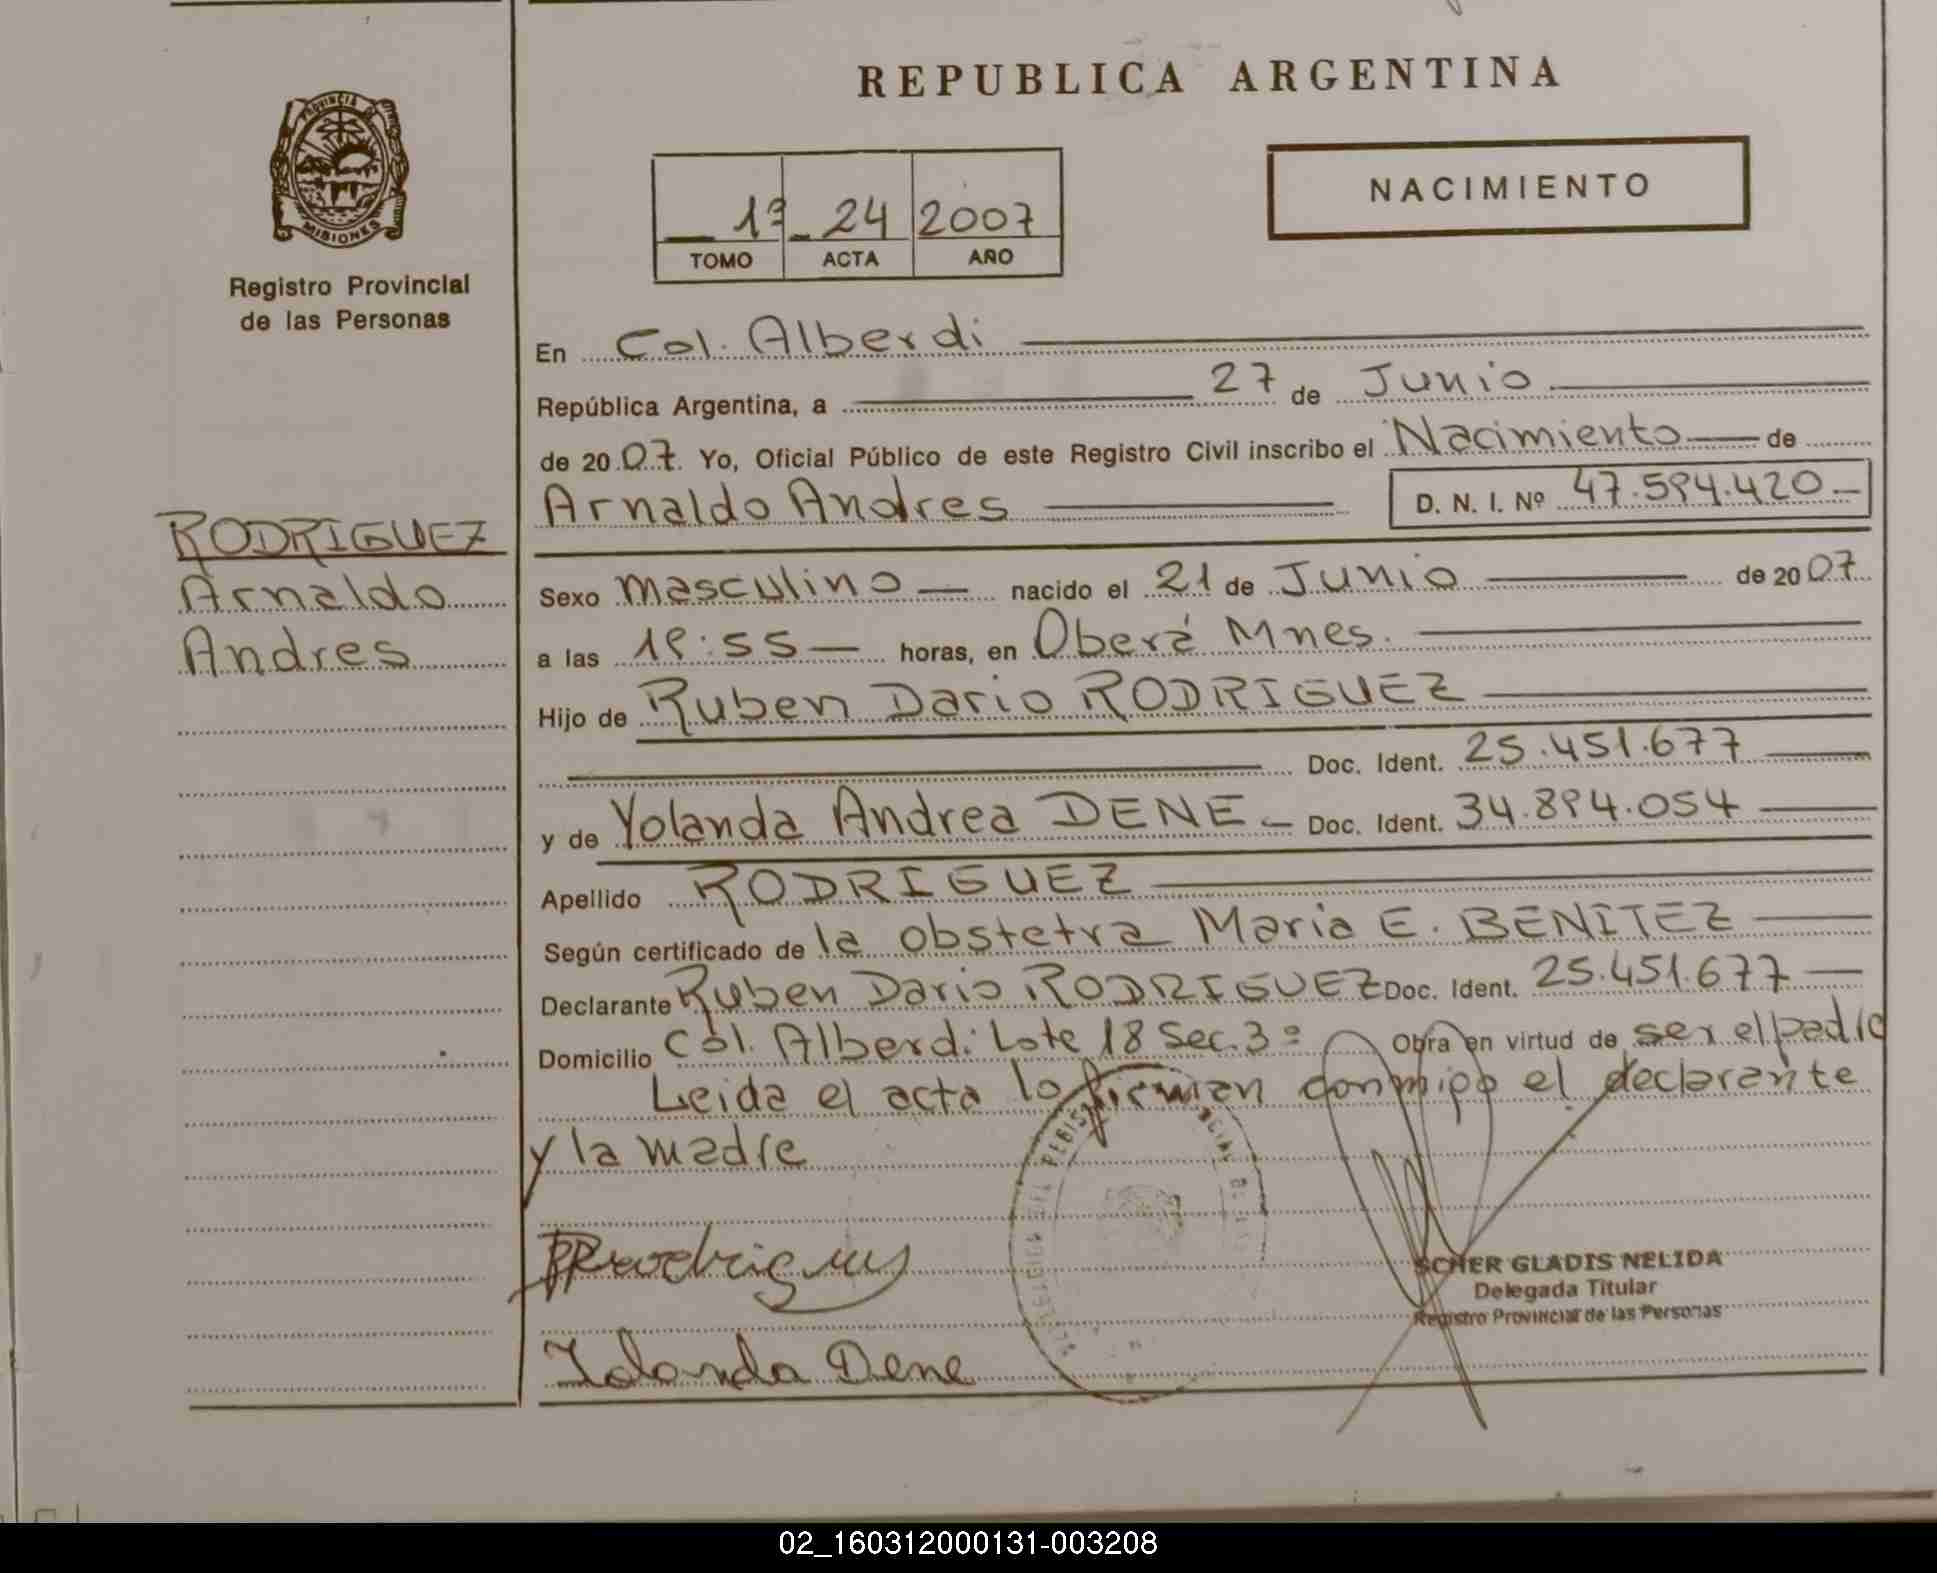 REPUBLICA ARGENTINA
PROVINCIA DE
MISIONES
Registro Provincial
de las Personas
1º 24 2007
TOMO ACTA AÑO
NACIMIENTO
RODRIGUEZ
Arnaldo
Andres
En Col. Alberdi
República Argentina, a 27 de Junio
de 2007. Yo, Oficial Público de este Registro Civil inscribo el Nacimiento de
Arnaldo Andres D. N. I. Nº 47.594.420.
Sexo masculino nacido el 21 de Junio de 2007
a las 19:55 horas, en Oberá Mnes.
Hijo de Ruben Dario RODRIGUEZ
Doc. Ident. 25.451.677
y de Yolanda Andrea DENE Doc. Ident. 34.894.054
Apellido RODRIGUEZ
Según certificado de la obstetra Maria E. BENITEZ
Declarante Ruben Dario RODRIGUEZ Doc. Ident. 25.451.677
Domicilio Col. Alberdi Lote 18 Sec. 3º Obra en virtud de ser el padre
Leida el acta lo firman conmigo el declarante
y la madre
Rodrigues
Yolanda Dene
SCHER GLADIS NELIDA
Delegada Titular
Registro Provincial de las Personas
02_160312000131-003208